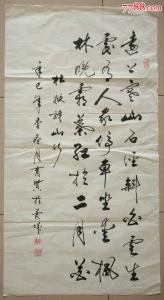 遠上寒山石徑斜白雲生
處有人家停車坐愛楓
林晚霜葉紅於二月花
杜牧詩山行
辛巳年
7788.com